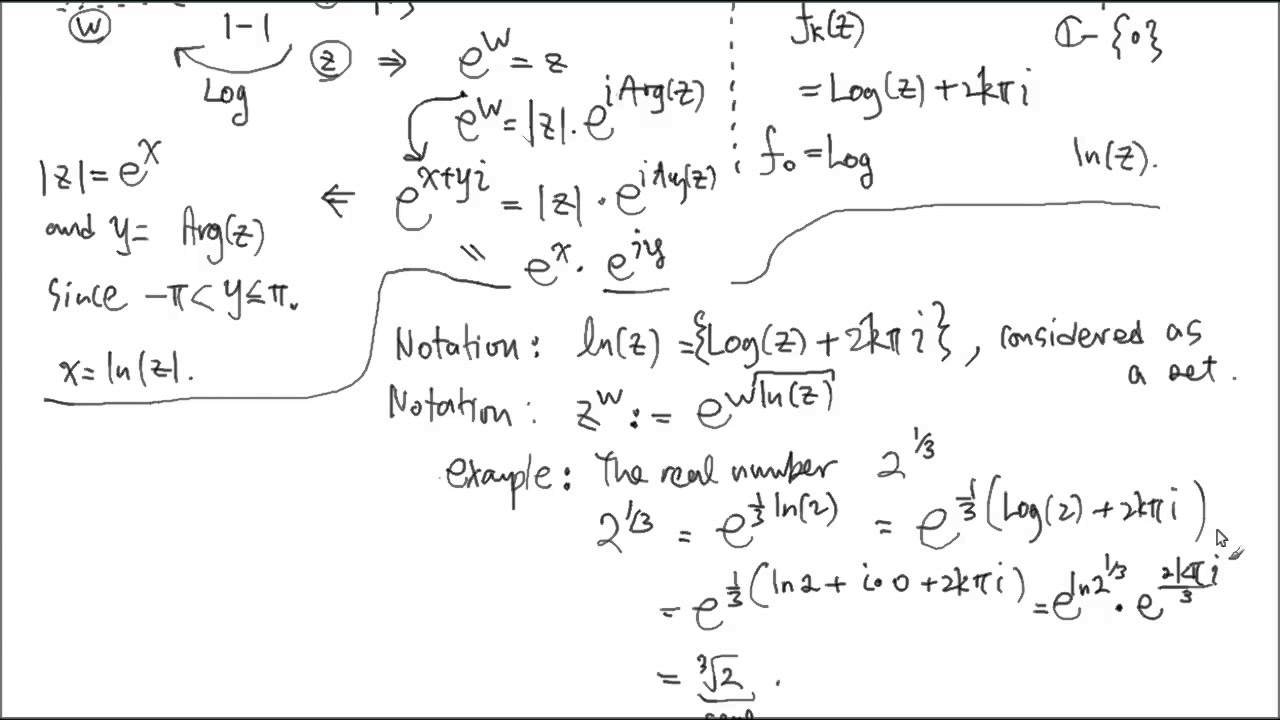 w 1-1 z ⇒ e^w = z
Log
e^w = |z| · e^{i Arg(z)}
|z| = e^x ⇐ e^{x+yi} = |z| · e^{i Arg(z)}
and y = Arg(z)
" e^x · e^{iy}
since -π < y ≤ π.
x = ln|z|.
f_k(z) ℂ - {0}
= Log(z) + 2kπi
f_0 = Log ln(z).
Notation: ln(z) = {Log(z) + 2kπi}, considered as
a set.
Notation: z^w := e^{w ln(z)}
example: The real number 2^{1/3}
2^{1/3} = e^{1/3 ln(2)} = e^{1/3 (Log(2) + 2kπi)}
= e^{1/3 (ln2 + i·0 + 2kπi)} = e^{ln2^{1/3}} · e^{2kπi/3}
= ∛2 .